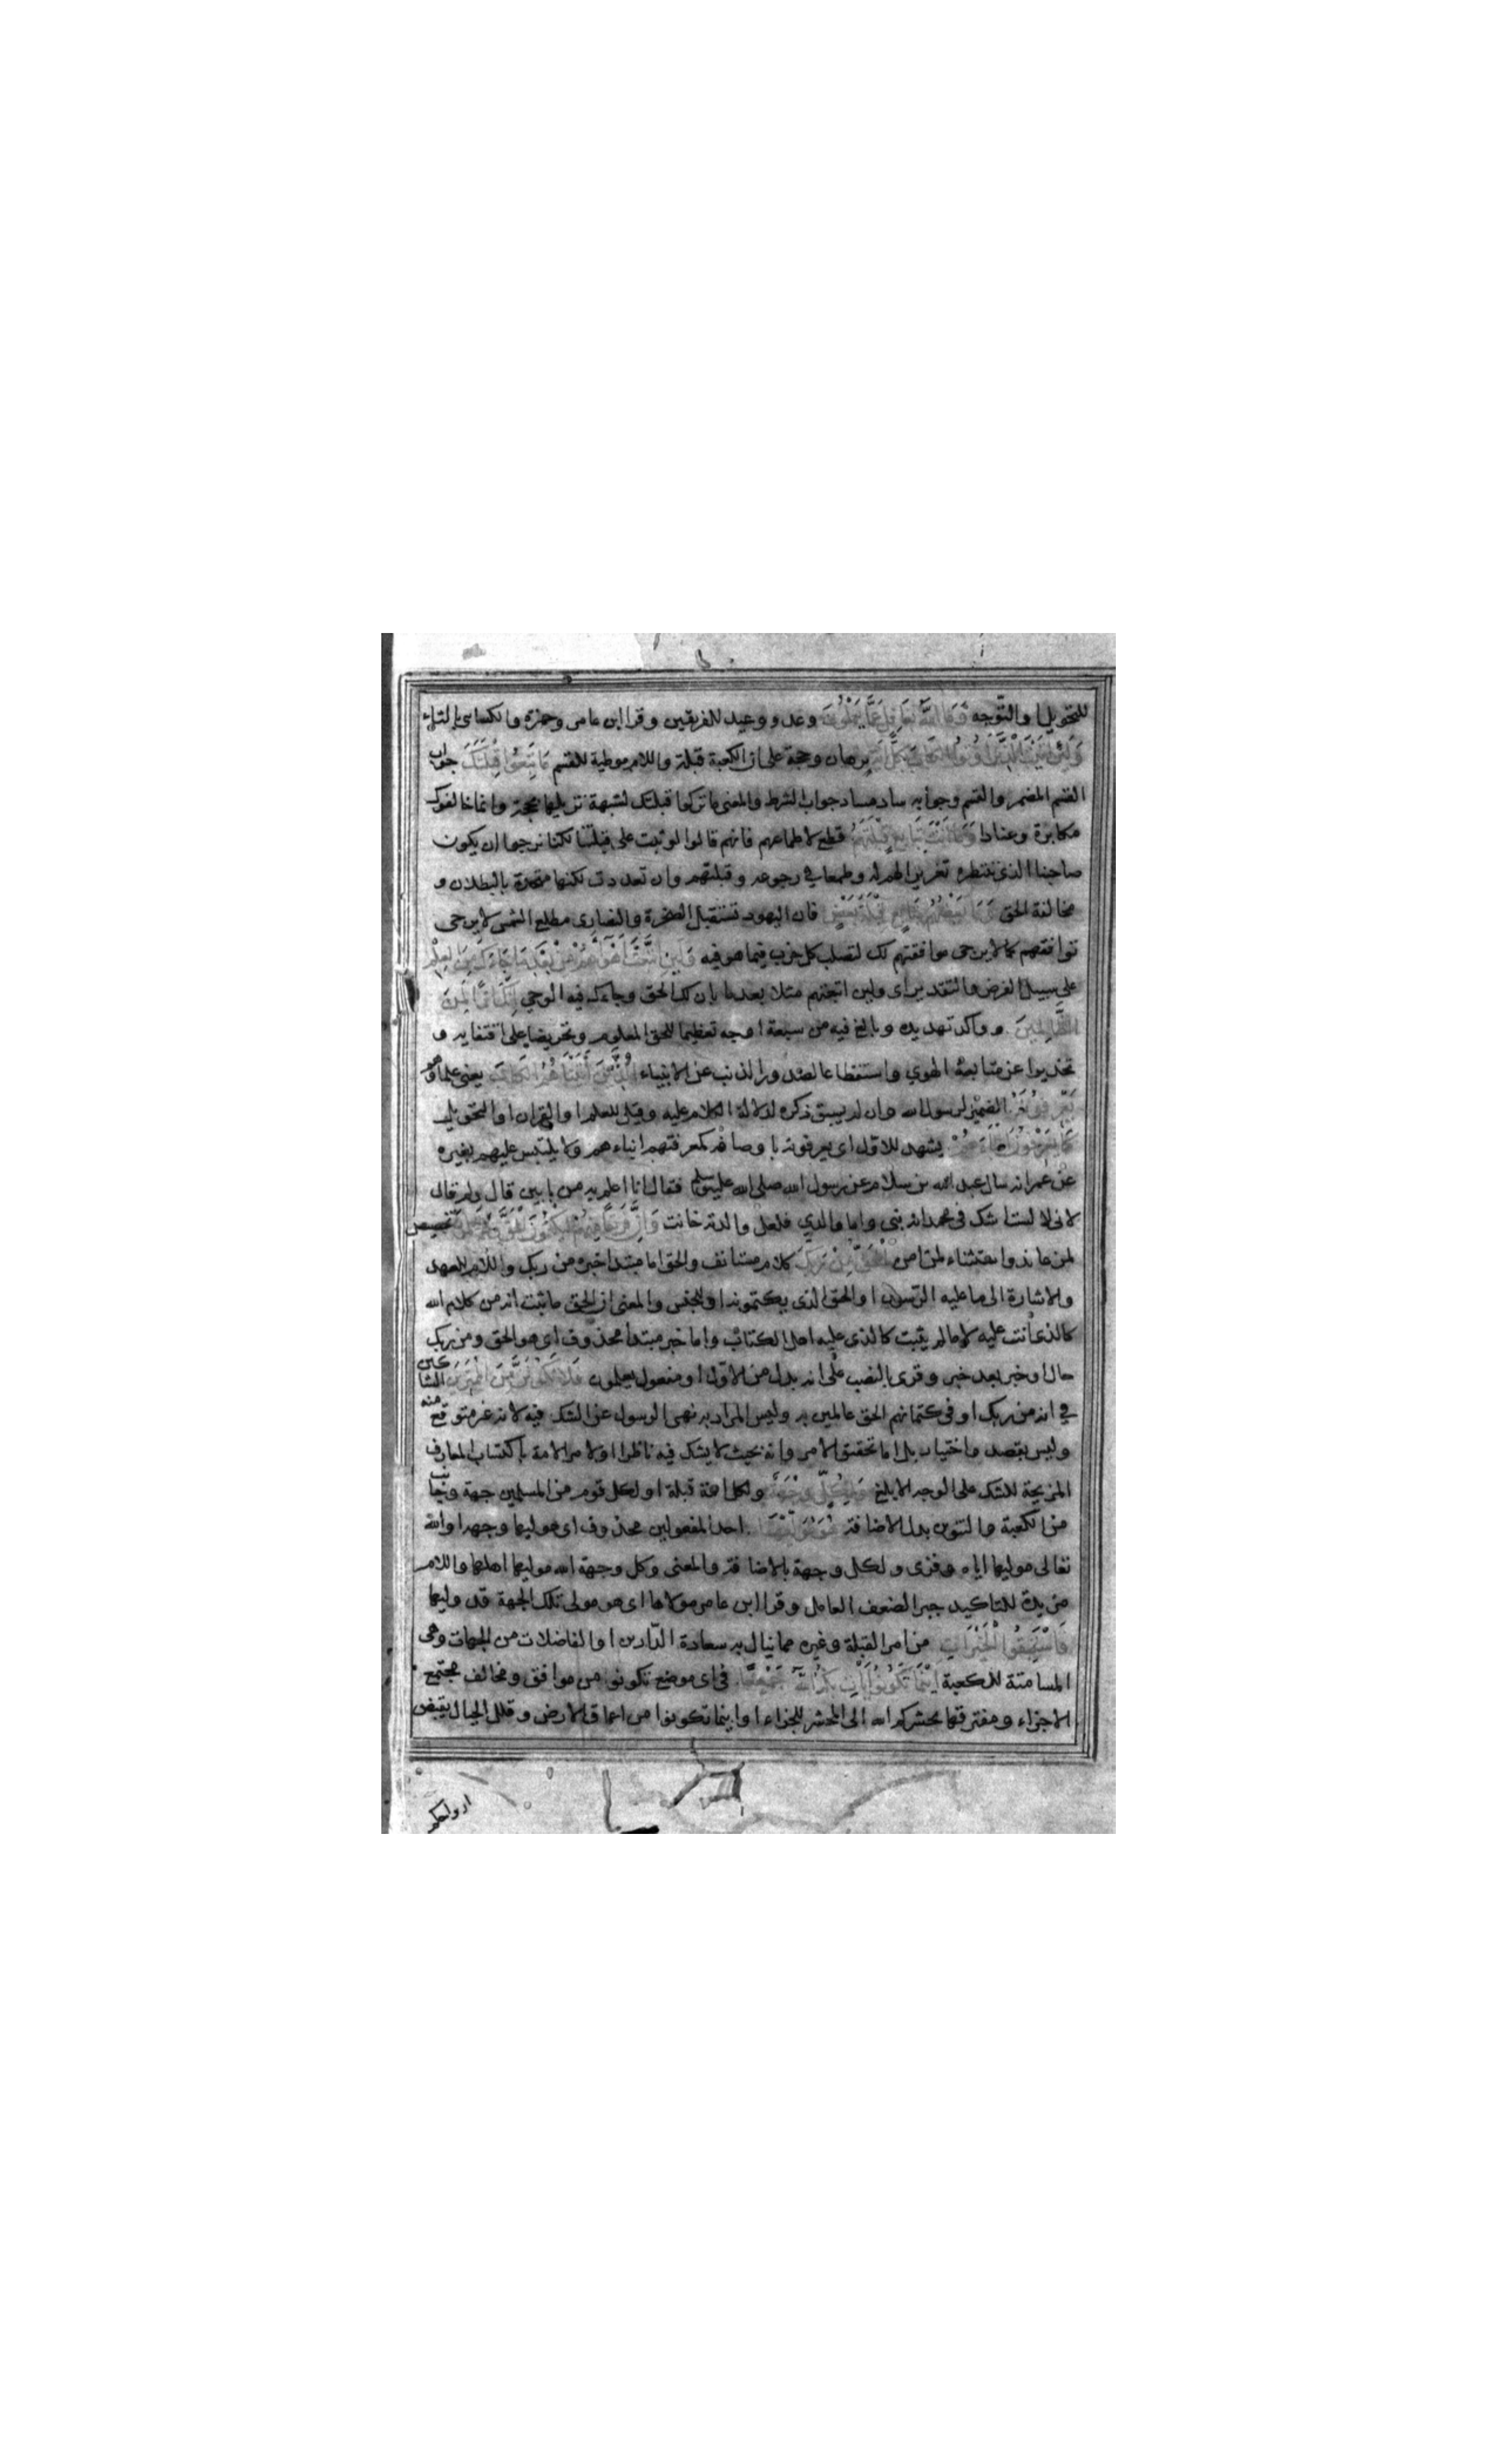 للتحويل او التوجه وما الله بغافل عما يعملون وعد ووعيد للفريقين وقرا ابن عامر وحمزة والكسائى بالتاء
ولئن اتيت الذين اوتوا الكتاب بكل اية برهان وحجة على ان الكعبة قبلة واللام موطية للقسم ما تبعوا قبلتك جواب
القسم المضمر والقسم وجوابه ساد مساد جواب الشرط والمعنى ما تركوا قبلتك لشبهة تزيلها بحجة وانما خالفوك
مكابرة وعنادا وما انت بتابع قبلتهم قطع لاطماعهم فانهم قالوا لو ثبت على قبلتنا لكنا نرجوا ان يكون
صاحبنا الذى ننتظره تغريرا لهم له وطمعا في رجوعه وقبلتهم وان تعددت لكنها متحدة بالبطلان و
مخالفة الحق وما بعضهم بتابع قبلة بعض فان اليهود تستقبل الصخرة والنصارى مطلع الشمس لا يرجى
توافقهم كما لا يرجى موافقتهم لك لتصلب كل حزب فيما هو فيه ولئن اتبعت اهواءهم من بعد ما جاءك من العلم
على سبيل الفرض والتقدير اى ولين اتبعتهم مثلا بعد ما بان لك الحق وجاءك فيه الوحي انك اذا لمن
الظالمين واكد تهديده وبالغ فيه من سبعة اوجه تعظيما للحق المعلوم وتحريضا على اقتفايه و
تحذيرا عن متابعة الهوي واستفظاعا لصدور الذنب عن الانبياء الذين اتيناهم الكتاب يعنى علماؤهم
يعرفونه الضمير لرسول الله وان لم يسبق ذكره لدلالة الكلام عليه وقيل للعلم او القران او التحويل
كما يعرفون ابناءهم يشهد للاول اى يعرفونه باوصافه كمعرفتهم ابناءهم ولا يلتبس عليهم بغيره
عن عمر انه سال عبد الله بن سلام عن رسول الله صلى الله عليه وسلم فقال انا اعلم به من بابنى قال ولم قال
لانى لا لست اشك فى محمد انه نبى واما والدي فلعل والدته خانت وان فريقا منهم ليكتمون الحق وهم يعلمون تخصيص
لمن عاند واستثناء لمن امن الحق من ربك كلام مستانف والحق اما مبتدا خبره من ربك واللام للعهد
والاشارة الى ما عليه الرسول او الحق الذى يكتمونه او للجنس والمعنى ان الحق ما ثبت انه من كلام الله
كالذى انت عليه لا ما لم يثبت كالذى عليه اهل الكتاب واما خبر مبتدا محذوف اى هو الحق ومن ربك
حال او خبر بعد خبر وقرى بالنصب على انه بدل من الاول او مفعول يعلمون فلا تكونن من الممترين الشاكين
في انه من ربك او فى كتمانهم الحق عالمين به وليس المراد به نهى الرسول عن الشك فيه لانه غير متوقع منه
وليس بقصد واختيار بل اما تحقيق الامر وانه بحيث لا يشك فيه ناظر او لامر الامة باكتساب المعارف
المزيحة للشك على الوجه الابلغ ولكل وجهة ولكل امة قبلة او لكل قوم من المسلمين جهة وجانب
من الكعبة والتنوين بدل الاضافة هو موليها احد المفعولين محذوف اى هو موليها وجهه او الله
تعالى موليها اياه وقرى ولكل وجهة بالاضافة والمعنى وكل وجهة الله موليها اهلها واللام
مزيدة للتاكيد جبرا لضعف العامل وقرا ابن عامر مولاها اى هو مولى تلك الجهة قد وليها
فاستبقوا الخيرات من امر القبلة وغيره مما ينال به سعادة الدارين او الفاضلات من الجهات وهى
المسامتة للكعبة اينما تكونوا يات بكم الله جميعا فى اى موضع تكونوا من موافق ومخالف مجتمع
الاجزاء ومفترقها يحشركم الله الى المحشر للجزاء او اينما تكونوا من اعماق الارض وقلل الجبال يقبض
ارواحكم